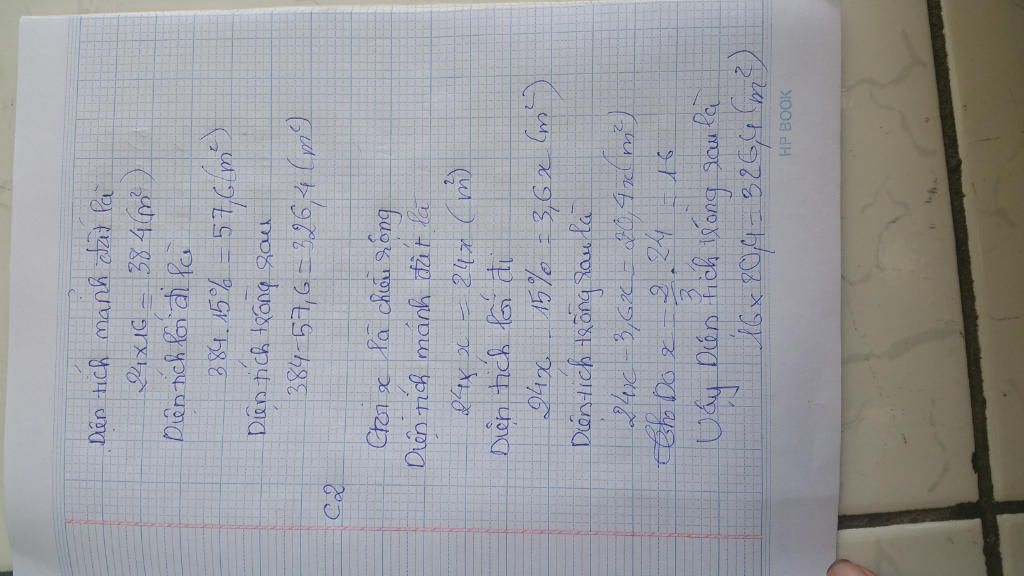 Diện tích mảnh đất là
24x16 = 384 (m²)
Diện tích lối đi là
384.15% = 57,6 (m²)
Diện tích trồng rau
384-57,6 = 326,4 (m²)
C2
Gọi x là chiều rộng
Diện tích mảnh đất là
24x x = 24x (m²)
Diện tích lối đi
24x . 15% = 3,6x (m²)
Diện tích trồng rau là
24x - 3,6x = 20,4x (m²)
Do x = 2/3 . 24 = 16
Vậy Diện tích trồng rau là
16 x 20,4 = 326,4 (m²)
HP BOOK